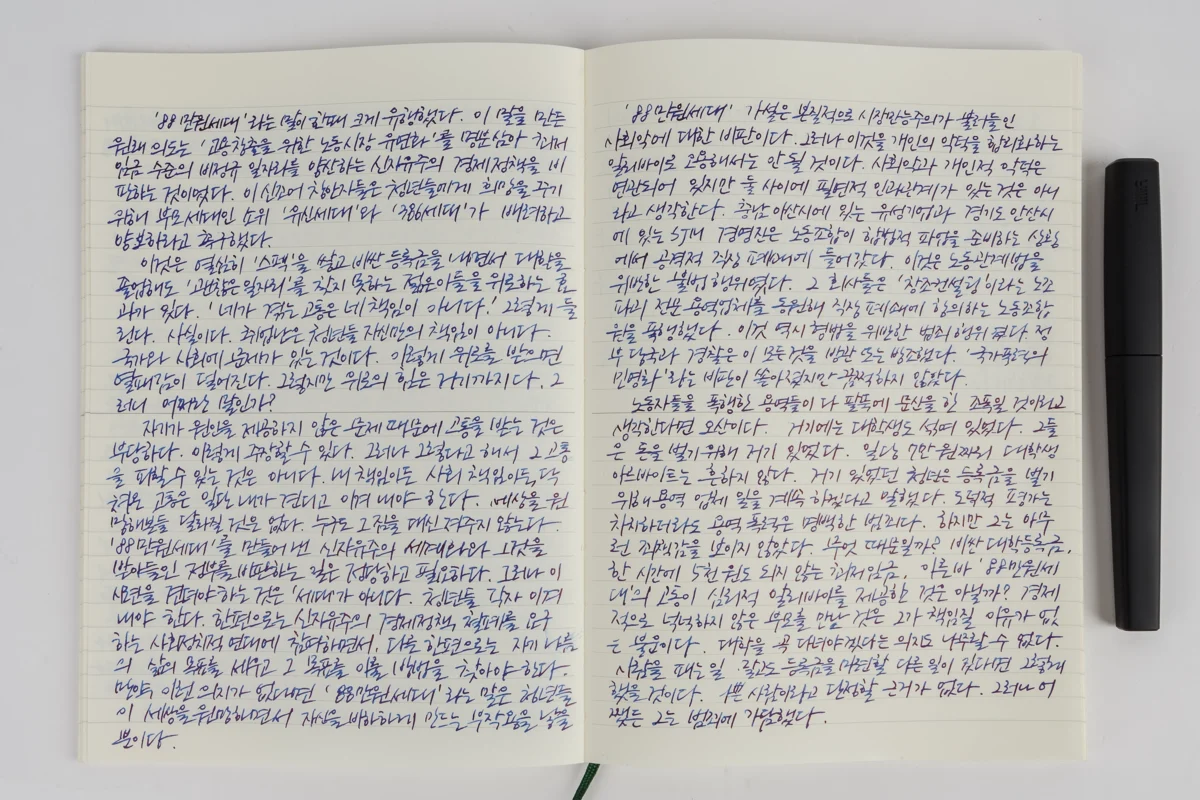 '88만원세대'라는 말이 한때 크게 유행했다. 이 말을 만든
원래 의도는 '고용창출을 위한 노동시장 유연화'를 명분삼아 최저
임금 수준의 비정규 일자리를 양산하는 신자유주의 경제정책을 비
판하는 것이었다. 이 신조어 창안자들은 청년들에게 희망을 주기
위해 부모세대인 소위 '유신세대'와 '386세대'가 배려하고
양보하라고 촉구했다.
이것은 열심히 '스펙'을 쌓고 비싼 등록금을 내면서 대학을
졸업해도 '괜찮은 일자리'를 잡지 못하는 젊은이들을 위로하는 효
과가 있다. '네가 겪는 고통은 네 책임이 아니다.' 그렇게 들
린다. 사실이다. 취업난은 청년들 자신만의 책임이 아니다.
국가와 사회에 문제가 있는 것이다. 이렇게 위로를 받으면
열패감이 덜어진다. 그렇지만 위로의 힘은 거기까지다. 그
러니 어쩌란 말인가?
자기가 원인을 제공하지 않은 문제 때문에 고통을 받는 것은
부당하다. 이렇게 주장할 수 있다. 그러나 그렇다고 해서 그 고통
을 피할 수 있는 것은 아니다. 내 책임이든 사회 책임이든, 닥
쳐온 고통은 일단 내가 견디고 이겨 내야 한다. 세상을 원
망해본들 달라질 것은 없다. 누구도 그 짐을 대신 져주지 않는다.
'88만원세대'를 만들어 낸 신자유주의 세계화와 그것을
받아들인 정부를 비판하는 일은 정당하고 필요하다. 그러나 이
시련을 견뎌야 하는 것은 '세대'가 아니다. 청년들 각자 이겨
내야 한다. 한편으로는 신자유주의 경제정책 철폐를 요구
하는 사회정치적 연대에 참여하면서, 다른 한편으로는 자기 나름
의 삶의 목표를 세우고 그 목표를 이룰 방법을 찾아야 한다.
만약 이런 의지가 없다면 '88만원세대'라는 말은 청년들
이 세상을 원망하면서 자신을 비하하게 만드는 부작용을 낳을
뿐이다.
'88만원세대' 가설은 본질적으로 시장만능주의가 불러들인
사회악에 대한 비판이다. 그러나 이것을 개인의 악덕을 합리화하는
알리바이로 고용해서는 안 될 것이다. 사회악과 개인적 악덕은
연관되어 있지만 둘 사이에 필연적 인과관계가 있는 것은 아니
라고 생각한다. 충남 아산시에 있는 유성기업과 경기도 안산시
에 있는 SJM 경영진은 노동조합이 합법적 파업을 준비하는 상황
에서 공격적 직장 폐쇄에 들어갔다. 이것은 노동관계법을
위반한 불법 행위였다. 그 회사들은 '창조컨설팅'이라는 노조
파괴 전문 용역업체를 동원해 직장 폐쇄에 항의하는 노동조합
원을 폭행했다. 이것 역시 형법을 위반한 범죄 행위였다. 정
부 당국과 경찰은 이 모든 것을 방관 또는 방조했다. '국가폭력의
민영화'라는 비판이 쏟아졌지만 끔쩍하지 않았다.
노동자들을 폭행한 용역들이 다 팔뚝에 문신을 한 조폭일 것이라고
생각한다면 오산이다. 거기에는 대학생도 섞여 있었다. 그들
은 돈을 벌기 위해 거기 있었다. 일당 7만 원짜리 대학생
아르바이트는 흔하지 않다. 거기 있었던 청년은 등록금을 벌기
위해 용역 업체 일을 계속 하겠다고 말했다. 도덕적 평가는
차치하더라도 용역 폭력은 명백한 범죄다. 하지만 그는 아무
런 죄책감을 보이지 않았다. 무엇 때문일까? 비싼 대학등록금,
한 시간에 5천 원도 되지 않는 최저임금, 이른바 '88만원세
대'의 고통이 심리적 알리바이를 제공한 것은 아닐까? 경제
적으로 넉넉하지 않은 부모를 만난 것은 그가 책임질 이유가 없
는 불운이다. 대학을 꼭 다녀야겠다는 의지도 나무랄 수 없다.
사람을 때는 일 말고도 등록금을 마련할 다른 일이 있다면 그렇게
했을 것이다. 나쁜 사람이라고 단정할 근거가 없다. 그러나 어
쨌든 그는 범죄에 가담했다.